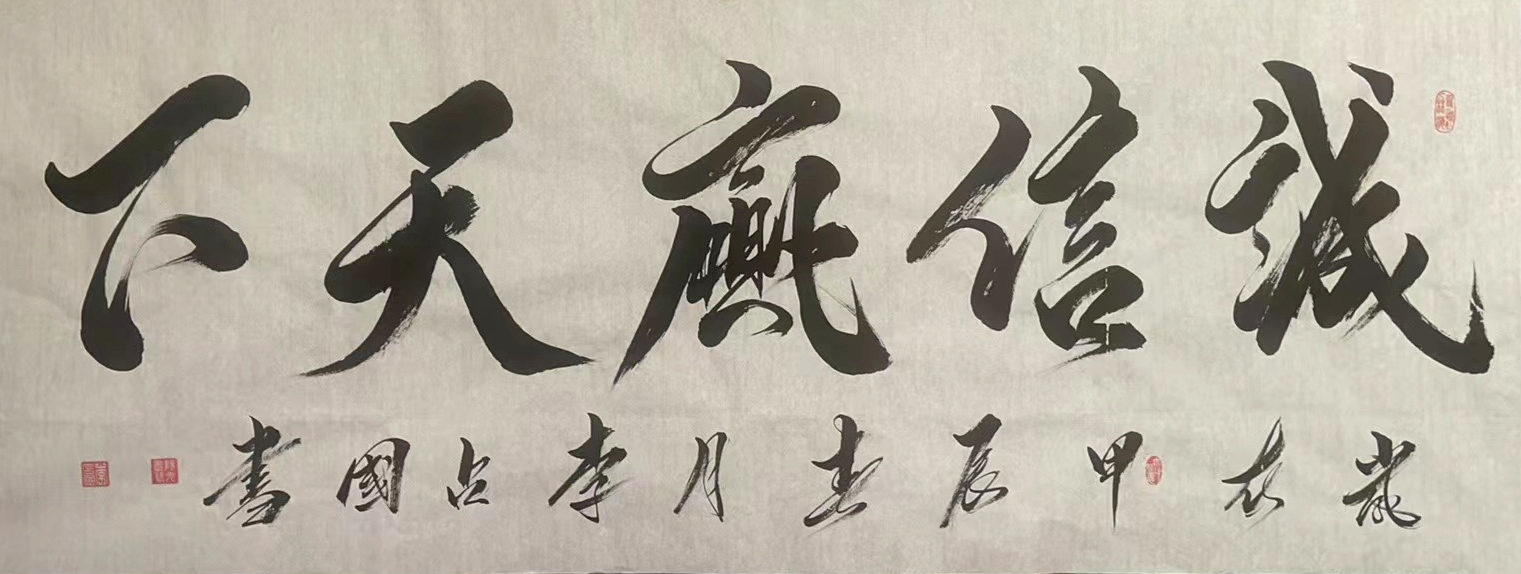 誠信贏天下
歲在甲辰春月李占國書